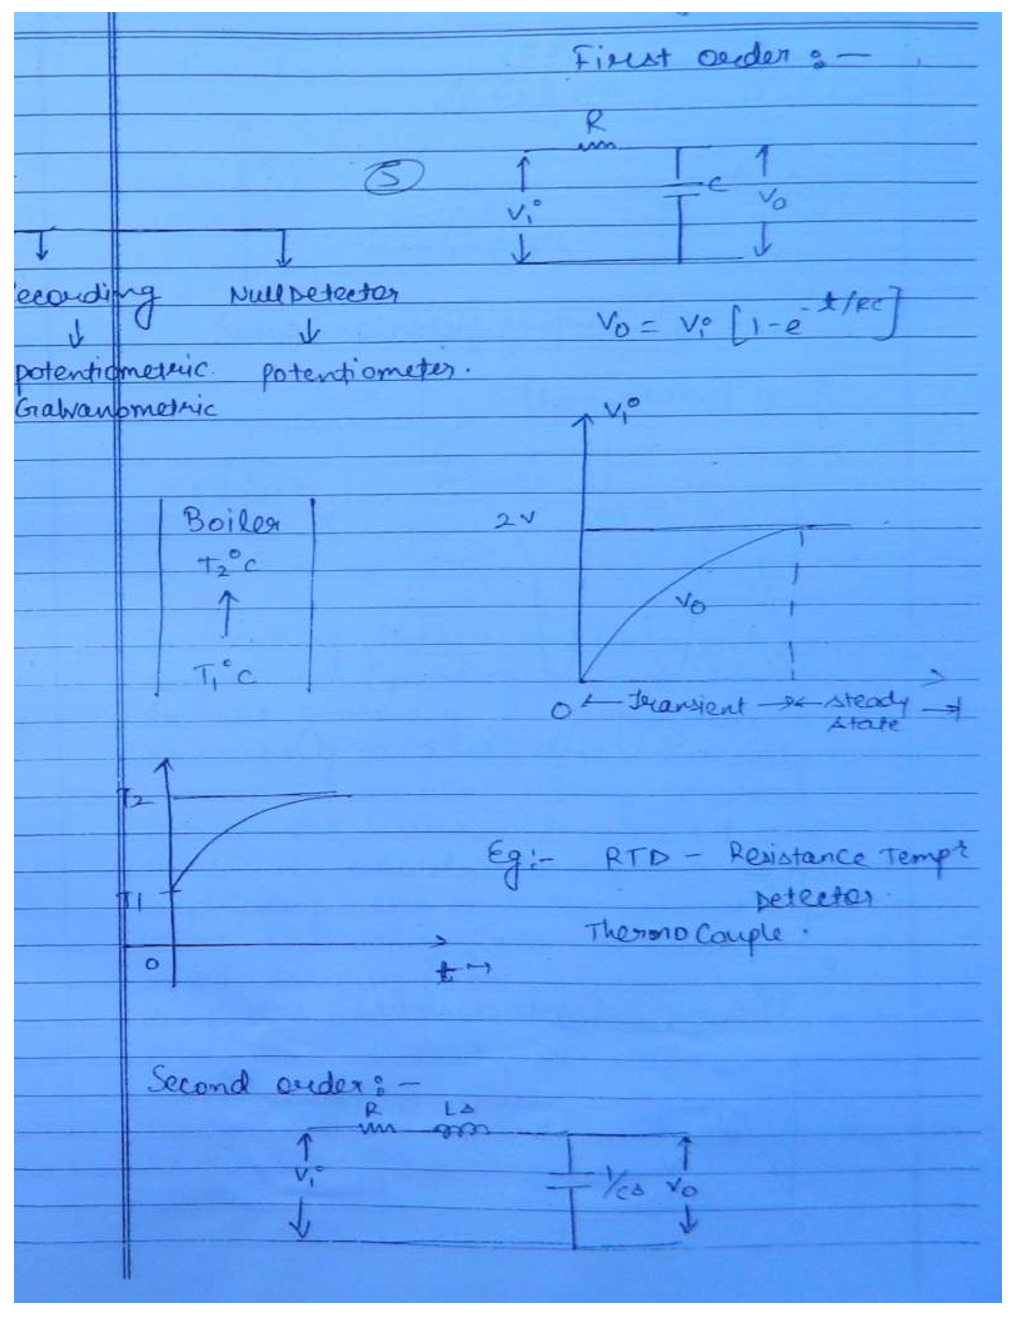 First order :-
R
5
Vi
C
Vo
ecording Null Detector
Vo = Vi [1-e^-t/RC]
potentiometric. potentiometer.
Galvanometric
Vi
Boiler
2V
T2°C
Vo
T1°C
0 ← Transient → ← steady →
state
T2
Eg:- RTD - Resistance Tempr
T1
Detector.
Thermo Couple.
0
t →
Second order :-
R LS
Vi
1/CS Vo